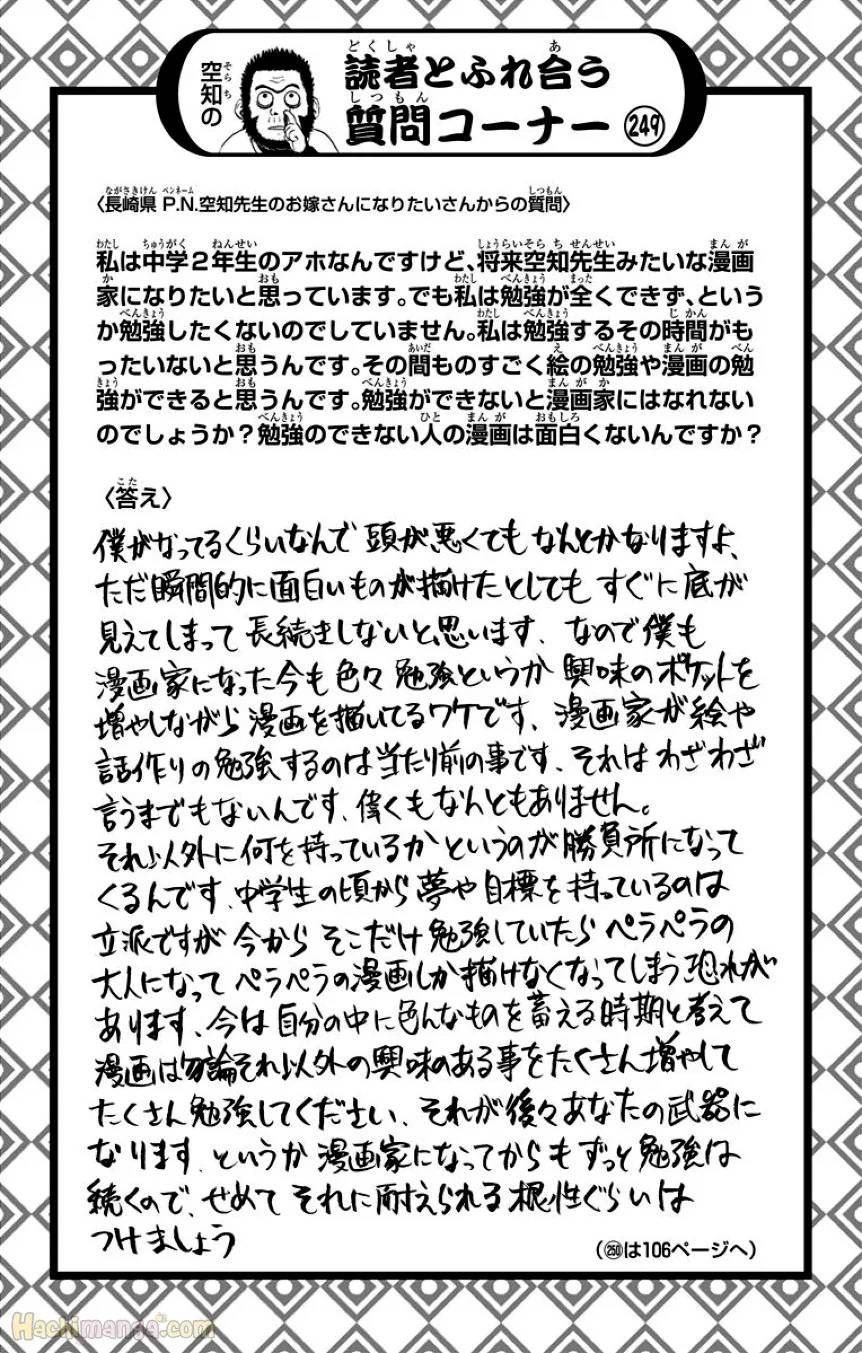 空知の
読者とふれ合う
質問コーナー 249
〈長崎県 P.N.空知先生のお嫁さんになりたいさんからの質問〉
私は中学2年生のアホなんですけど、将来空知先生みたいな漫画
家になりたいと思っています。でも私は勉強が全くできず、という
か勉強したくないのでしていません。私は勉強するその時間がも
ったいないと思うんです。その間ものすごく絵の勉強や漫画の勉
強ができると思うんです。勉強ができないと漫画家にはなれない
のでしょうか？勉強のできない人の漫画は面白くないんですか？
〈答え〉
僕がなってるくらいなんで 頭が悪くても なんとかなりますよ、
ただ瞬間的に面白いものが描けたとしても すぐに底が
見えてしまって 長続きしないと思います、なので僕も
漫画家になった今も色々 勉強というか 興味のポケットを
増やしながら 漫画を描いてるワケです、漫画家が絵や
話作りの勉強するのは当たり前の事です、それは わざわざ
言うまでもないんです、偉くもなんともありません。
それ以外に何を持っているか というのが勝負所になって
くるんです、中学生の頃から夢や目標を持っているのは
立派ですが 今から そこだけ勉強していたら ペラペラの
大人になって ペラペラの漫画しか描けなくなってしまう恐れが
あります、今は自分の中に色んなものを蓄える時期と考えて
漫画は勿論それ以外の興味のある事をたくさん増やして
たくさん勉強してください、それが後々あなたの武器に
なります、というか 漫画家になってからも ずっと勉強は
続くので、せめて それに耐えられる根性ぐらいは
つけましょう
（250は106ページへ）
Hachimanga.com